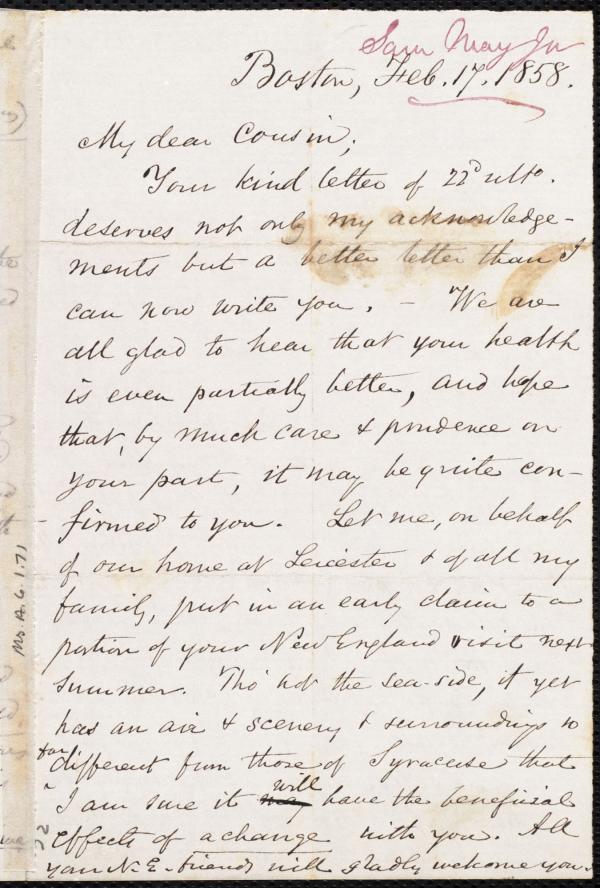 Sam May Jr
Boston, Feb. 17. 1858.
My dear Cousin,
Your kind letter of 22d ulto.
deserves not only my acknowledge-
ments but a better letter than I
can now write you. – We are
all glad to hear that your health
is even partially better, and hope
that, by much care & prudence on
your part, it may be quite con-
firmed to you. Let me, on behalf
of our home at Leicester & of all my
family, put in an early claim to a
portion of your New England visit next
summer. Tho' not the sea-side, it yet
has an air & scenery & surroundings so
far different from those of Syracuse that
I am sure it may will have the beneficial
effects of a change with you. All
your N.E. friends will gladly welcome you.
Ms A. 6.1.71